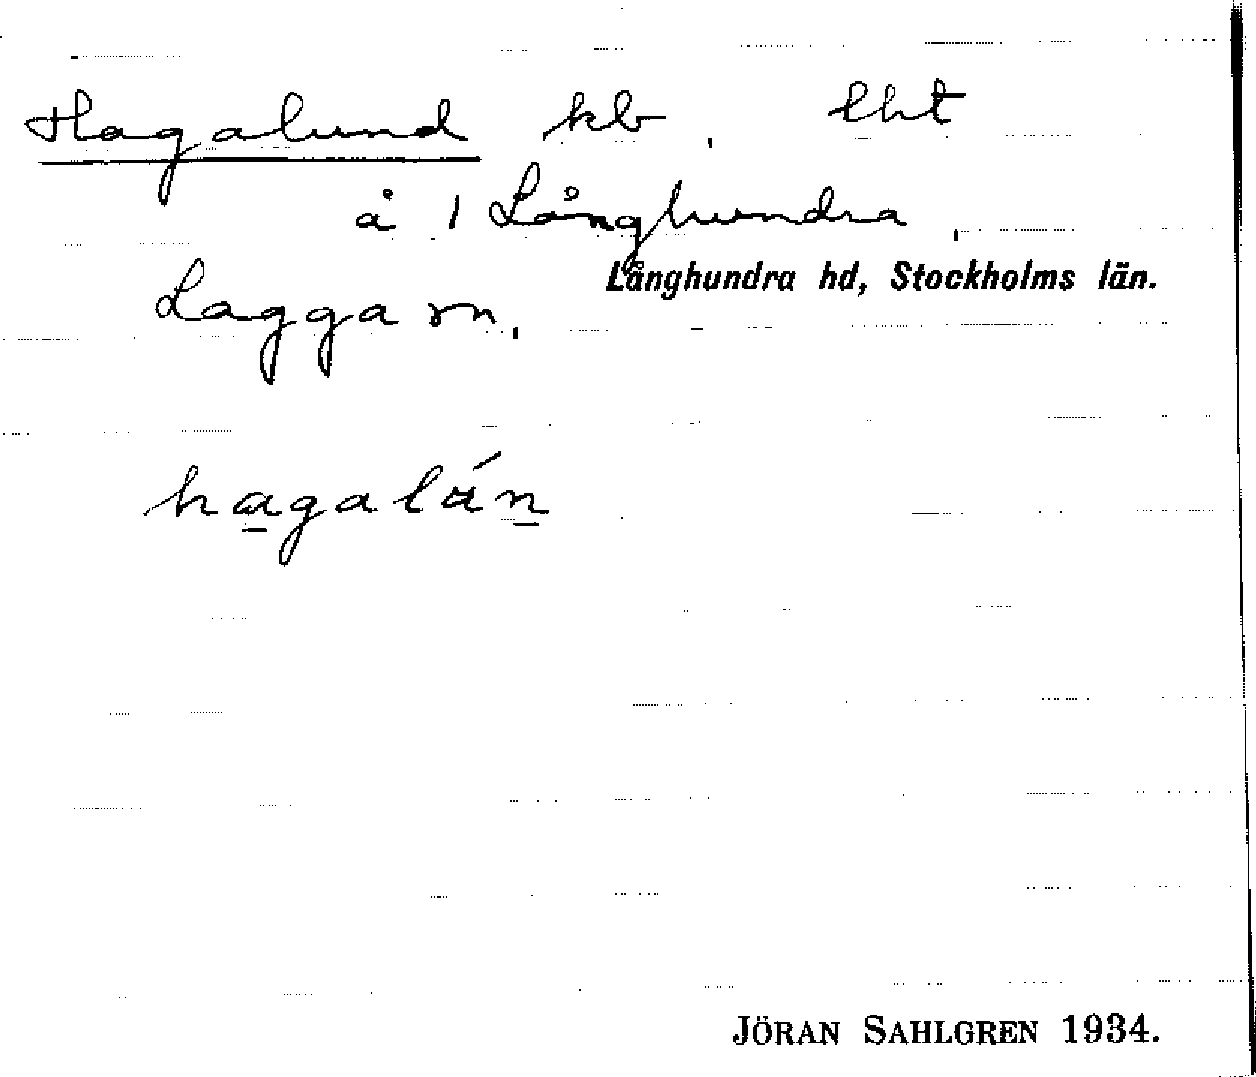 Hagalund kb, lht
å 1 Långhundra,
Långhundra hd, Stockholms län.
Lagga sn,
hagalán
JÖRAN SAHLGREN 1934.